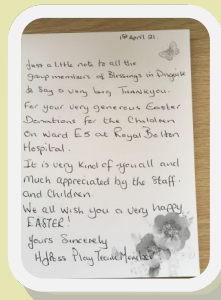 1st April 21.
Just a little note to all the
group members of Blessings in Disguise
to Say a very big Thankyou.
For your very generous Easter
Donations for the Children
on Ward E5 at Royal Bolton
Hospital.
It is very kind of you all and
much appreciated by the Staff
and Children.
We all wish you a very happy
EASTER!
Yours Sincerely
Play Team Member